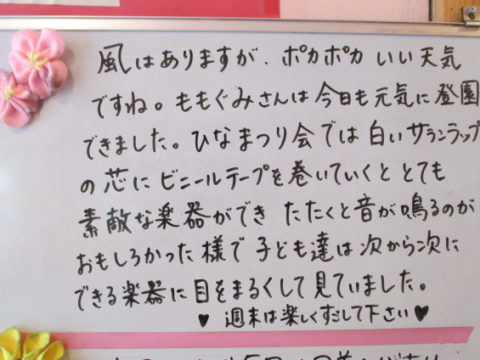 風はありますが、ポカポカ いい 天気
ですね。ももぐみさんは今日も元気に登園
できました。ひなまつり会では白いサランラップ
の芯にビニールテープを巻いていくと とても
素敵な楽器ができ たたくと音が鳴るのが
おもしろかった様で子ども達は次から次に
できる楽器に目をまるくして見ていました。
♥ 週末は楽しくすごして下さい ♥